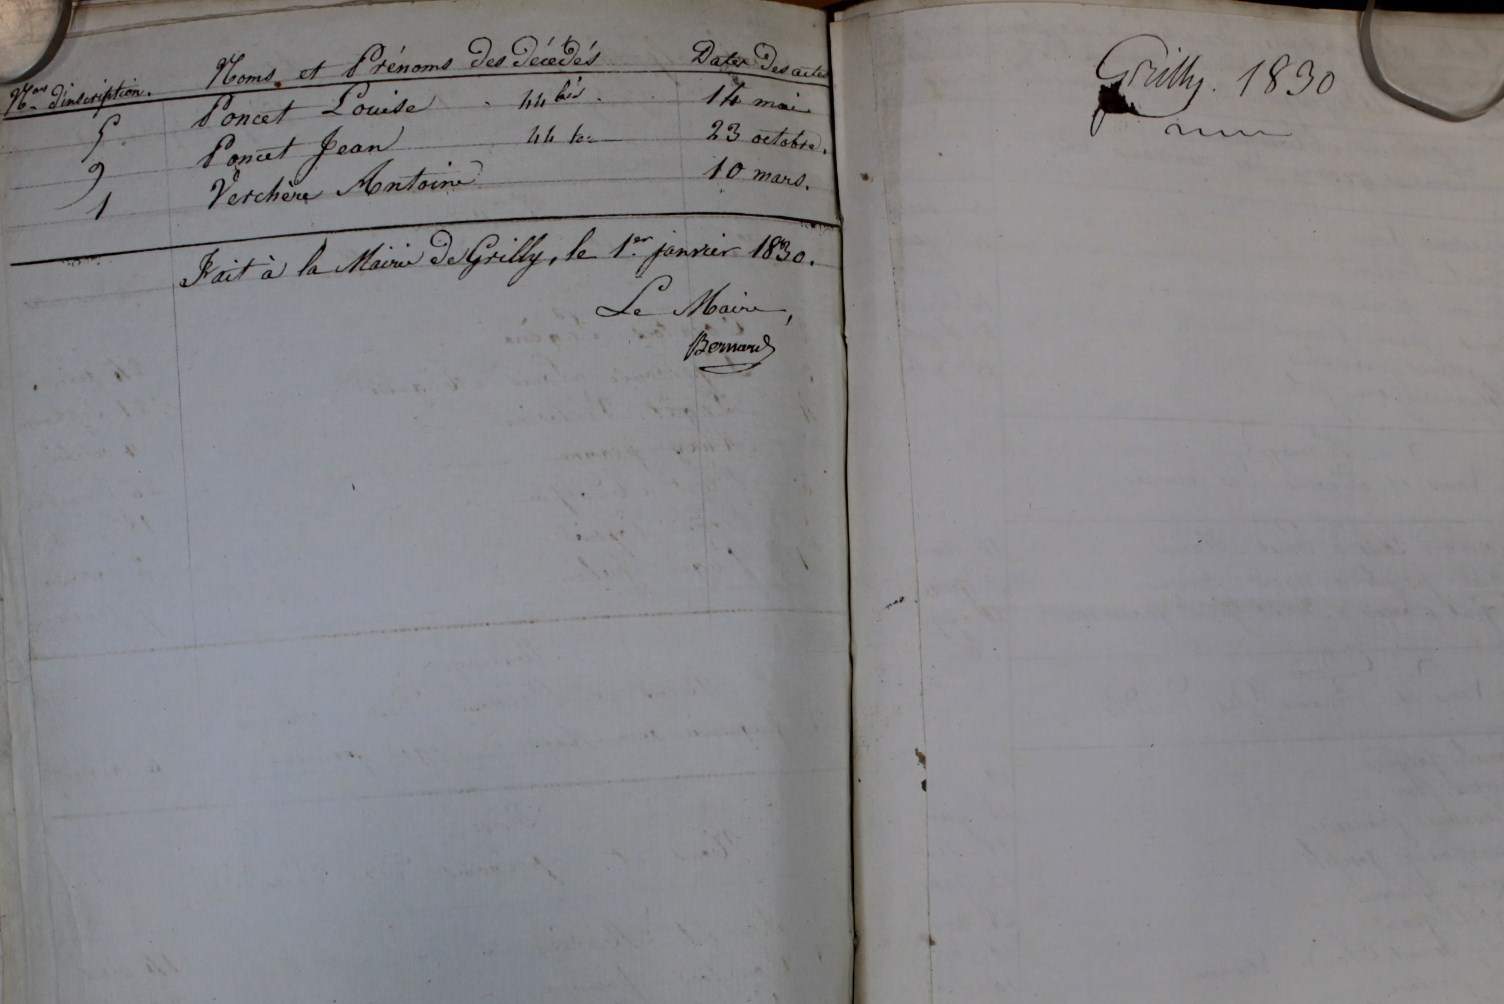 Nos d'inscription. Noms et Prénoms des décédés Dates des actes
5 Poncet Louise 44 bis 14 mai
9 Poncet Jean 44 23 octobre.
1 Verchère Antoine 10 mars.
Fait à la Mairie de Grilly, le 1er janvier 1830.
Le Maire,
Bernard
Grilly. 1830